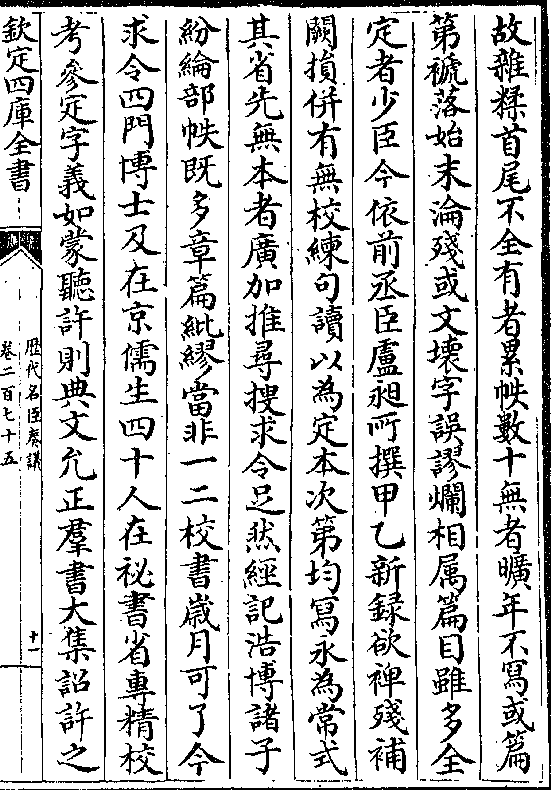 故雜糅首尾不全有者累帙數十無者曠年不寫或篇
第褫落始末淪殘或文壞字誤謬爛相属篇目雖多全
定者少臣今依前丞臣盧昶所撰甲乙新録欲裨殘補
闕損併有無校練句讀以為定本次第均寫永為常式
其省先無本者廣加推尋搜求令足然經記浩博諸子
紛綸部帙既多章篇紕繆當非一二校書嵗月可了今
求令四門博士及在京儒生四十人在祕書省專精校
考參定字義如蒙聽許則典文允正羣書大集詔許之
欽定四庫全書
歴代名臣奏議
卷二百七十五
十一